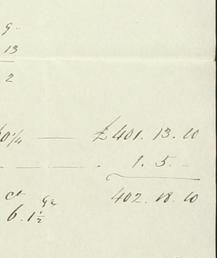 9.
13
2
0/4 — £401. 13. 10
1. 5. -
402. 18. 10
ct qr
6. 1½